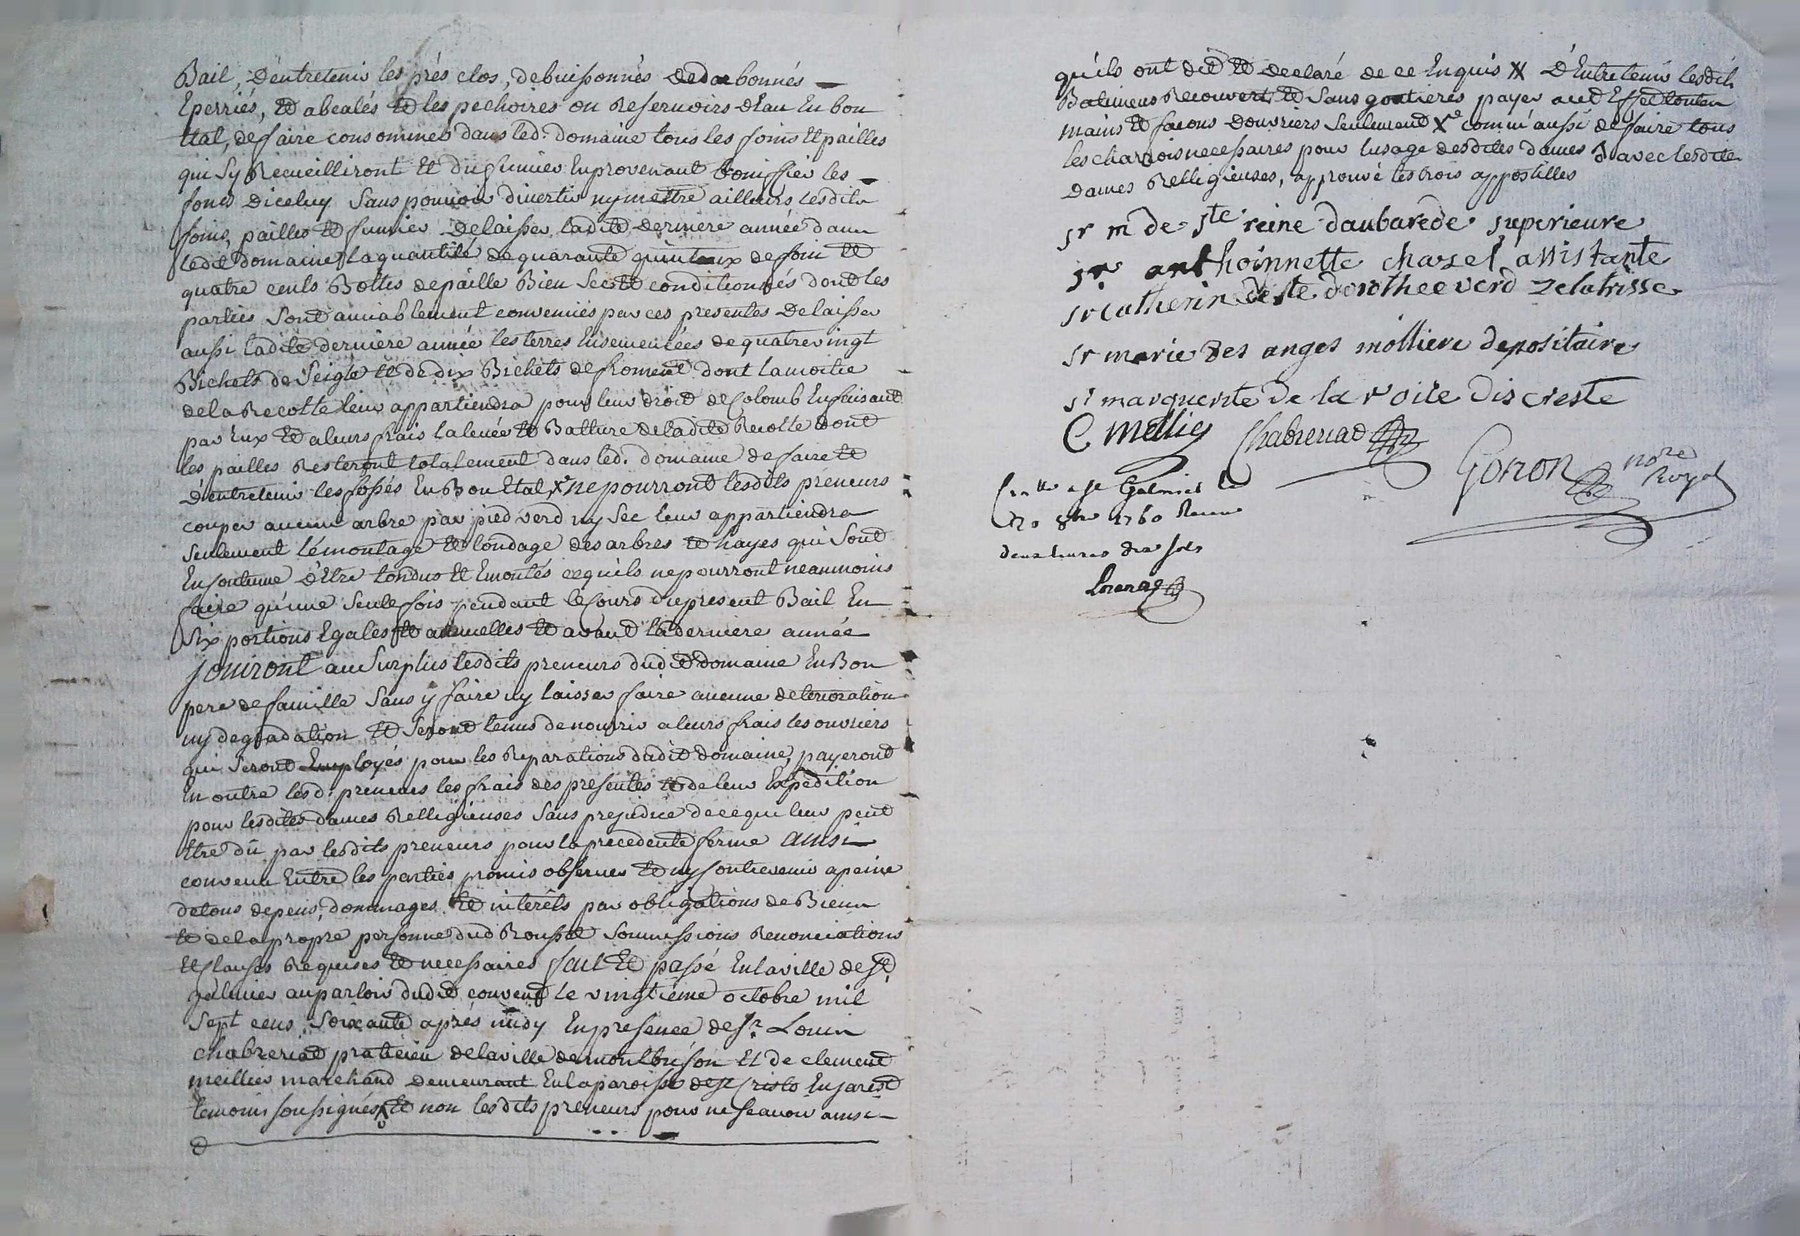 Bail, D'entretenir les prés clos, debuissonnés dedarbonnés
Eperriés, et abealés et les pechoires ou Reservoirs d'Eau En bon
Etat, de faire consommer dans led. domaine tous les foins Et pailles
qui Sy Recueilliront Et du fumier En provenant bonniffier les
fonds Diceluy Sans pouvoir divertir ny mettre ailleurs lesdits
foins, pailles et fumier Delaisser ladite derniere année dans
ledit domaine la quantité de quarante quintaux de foin et
quatre cents Bottes de paille Bien Sec et conditionnés dont les
parties Sont amiablement convenües par ces presentes Delaisser
aussi ladite derniere année les terres Ensemencées de quatrevingt
Bichets de Seigle et de dix Bichets de froment dont la moitié
de la Recolte leur appartiendra pour leur droit de Colomb En faisant
par Eux et a leurs frais la levée et Batture de ladite Recolte dont
les pailles Resteront totalement dans led. domaine de faire et
D'entretenir les fossés En Bon Etat, x ne pourront lesdits preneurs
couper aucun arbre par pied verd ny Sec leur appartiendra
Seulement l'émontage et tondage des arbres et hayes qui Sont
En coutume d'Etre tondus Et Emontés cequils ne pourront neanmoins
faire qu'une Seule fois pendant le Cours du present Bail En
Six portions Egales et annuelles et avant la derniere année
jouiront au Surplus lesdits preneurs dudit domaine En Bon
pere de famille Sans y faire ny laisser faire aucune deterioration
ny degradation et Seront tenus de nourrir a leurs frais les ouvriers
qui Seront Employés pour les Reparations dudit domaine, payeront
En outre lesd. preneurs les frais des presentes et de leur Expedition
pour lesdites dames Relligieuses Sans prejudice de ce qui leur peut
Etre dû par lesdits preneurs pour la precedente ferme ainsi
convenu Entre les parties promis observer et ny contrevenir a peine
de tous depens, dommages et interêts par obligations de Biens
et de la propre personne dud Rousset Soumissions Renonciations
Et Clauses Requises et necessaires fait Et passé En la ville de St
galmier au parloir dudit couvent le vingtieme octobre mil
Sept cens Soixante apres midy En presence de Sr. Louis
chabreriat praticien de la ville de montbrison Et de clement
meillier marchand demeurant En la paroisse de St Cristo En jarest
temoins soussignés, et non lesdits preneurs pour ne Scavoir ainsi
qu'ils ont dit et declaré de ce Enquis X D'Entretenir lesdits
Batimens Recouverts et Sans goutieres payer a cet Effet toutes
mains et facons D'ouvriers Seulement X comm'aussi de faire tous
les charrois necessaires pour l'usage desdites dames avec lesdites
Dames Relligieuses, approuvé les trois appostilles
sr m de ste reine daubarede superieure
sr anthoinnette chazel assistante
sr catherin de ste dorothee verd zelatrisse
sr marie des anges molliere depositaire
sr marguerite de la roire discrette
C Meillier Chabreriat Gonon notre Royal
Con.lle a St Galmier le
20 8bre 1760 Recu
douze sols